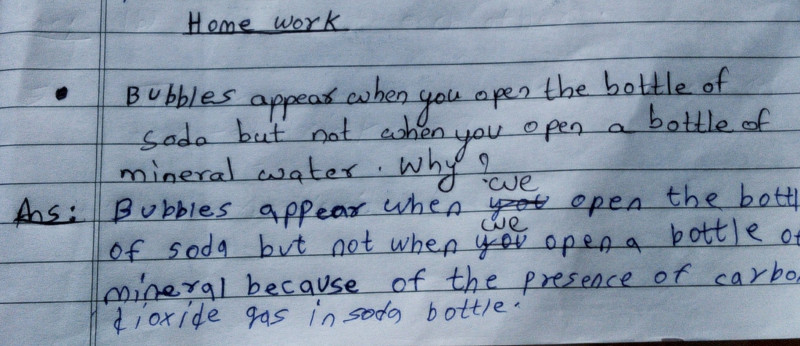 Home work
• Bubbles appear when you open the bottle of
soda but not when you open a bottle of
mineral water. Why?
Ans: Bubbles appear when we open the bottl
of soda but not when we open a bottle of
mineral because of the presence of carbo
dioxide gas in soda bottle.